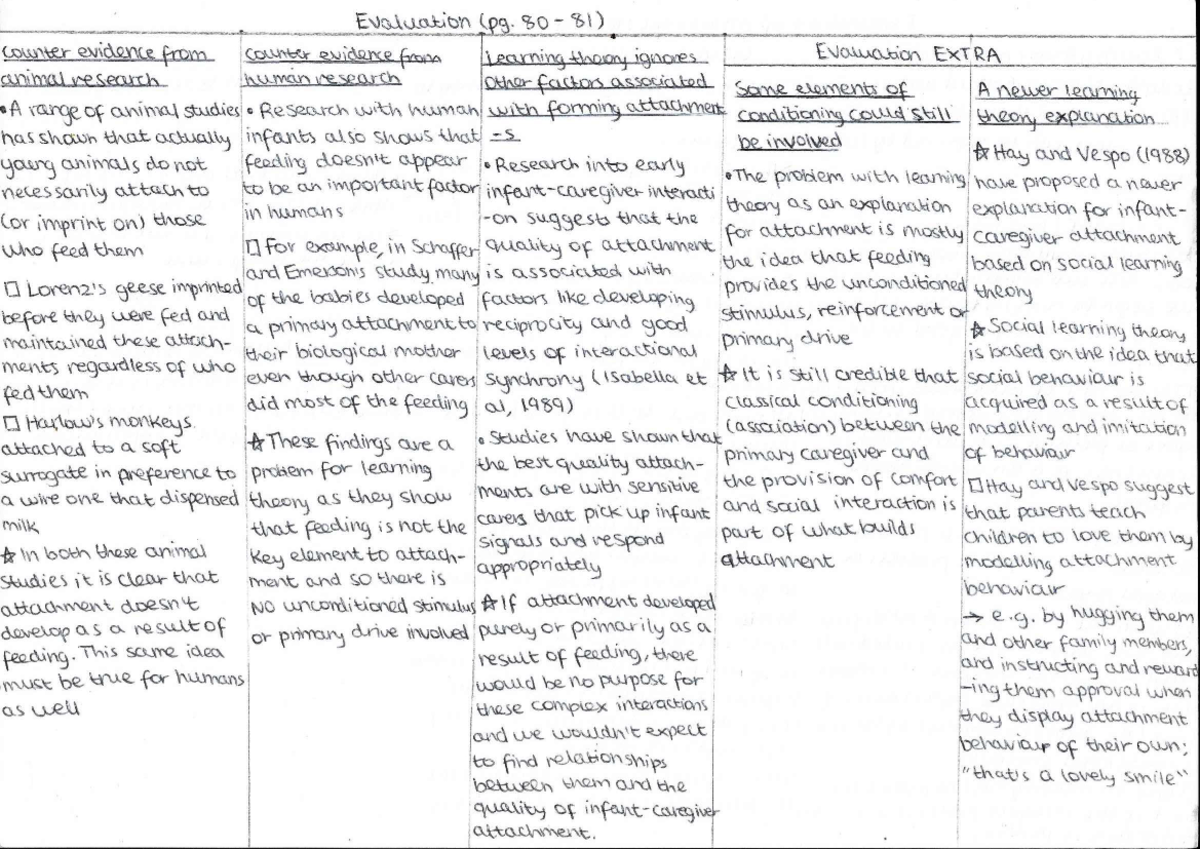 Evaluation (pg. 80 - 81)
counter evidence from
animal research
•A range of animal studies
has shown that actually
young animals do not
necessarily attach to
(or imprint on) those
who feed them
□ Lorenz's geese imprinted
before they were fed and
maintained these attach-
ments regardless of who
fed them
□ Harlow's monkeys
attached to a soft
surrogate in preference to
a wire one that dispensed
milk
☆ In both these animal
studies it is clear that
attachment doesn't
develop as a result of
feeding. This same idea
must be true for humans
as well
counter evidence from
human research
• Research with human
infants also shows that
feeding doesn't appear
to be an important factor
in humans
□ For example, in Schaffer
and Emerson's study many
of the babies developed
a primary attachment to
their biological mother
even though other carers
did most of the feeding
☆ These findings are a
problem for learning
theory as they show
that feeding is not the
key element to attach-
ment and so there is
no unconditioned stimulus
or primary drive involved
Learning theory ignores
other factors associated
with forming attachment
-s
• Research into early
infant-caregiver interacti
-on suggests that the
quality of attachment
is associated with
factors like developing
reciprocity and good
levels of interactional
synchrony (Isabella et
al, 1989)
• Studies have shown that
the best quality attach-
ments are with sensitive
carers that pick up infant
signals and respond
appropriately
☆ If attachment developed
purely or primarily as a
result of feeding, there
would be no purpose for
these complex interactions
and we wouldn't expect
to find relationships
between them and the
quality of infant-caregiver
attachment.
Evaluation EXTRA
Some elements of
conditioning could still
be involved
•The problem with learning
theory as an explanation
for attachment is mostly
the idea that feeding
provides the unconditioned
stimulus, reinforcement or
primary drive
☆ It is still credible that
classical conditioning
(association) between the
primary caregiver and
the provision of comfort
and social interaction is
part of what builds
attachment
A newer learning
theory explanation
☆ Hay and Vespo (1988)
have proposed a newer
explanation for infant-
caregiver attachment
based on social learning
theory
☆ Social learning theory
is based on the idea that
social behaviour is
acquired as a result of
modelling and imitation
of behaviour
□ Hay and Vespo suggest
that parents teach
children to love them by
modelling attachment
behaviour
→ e.g. by hugging them
and other family members,
and instructing and reward
-ing them approval when
they display attachment
behaviour of their own;
"that's a lovely smile"